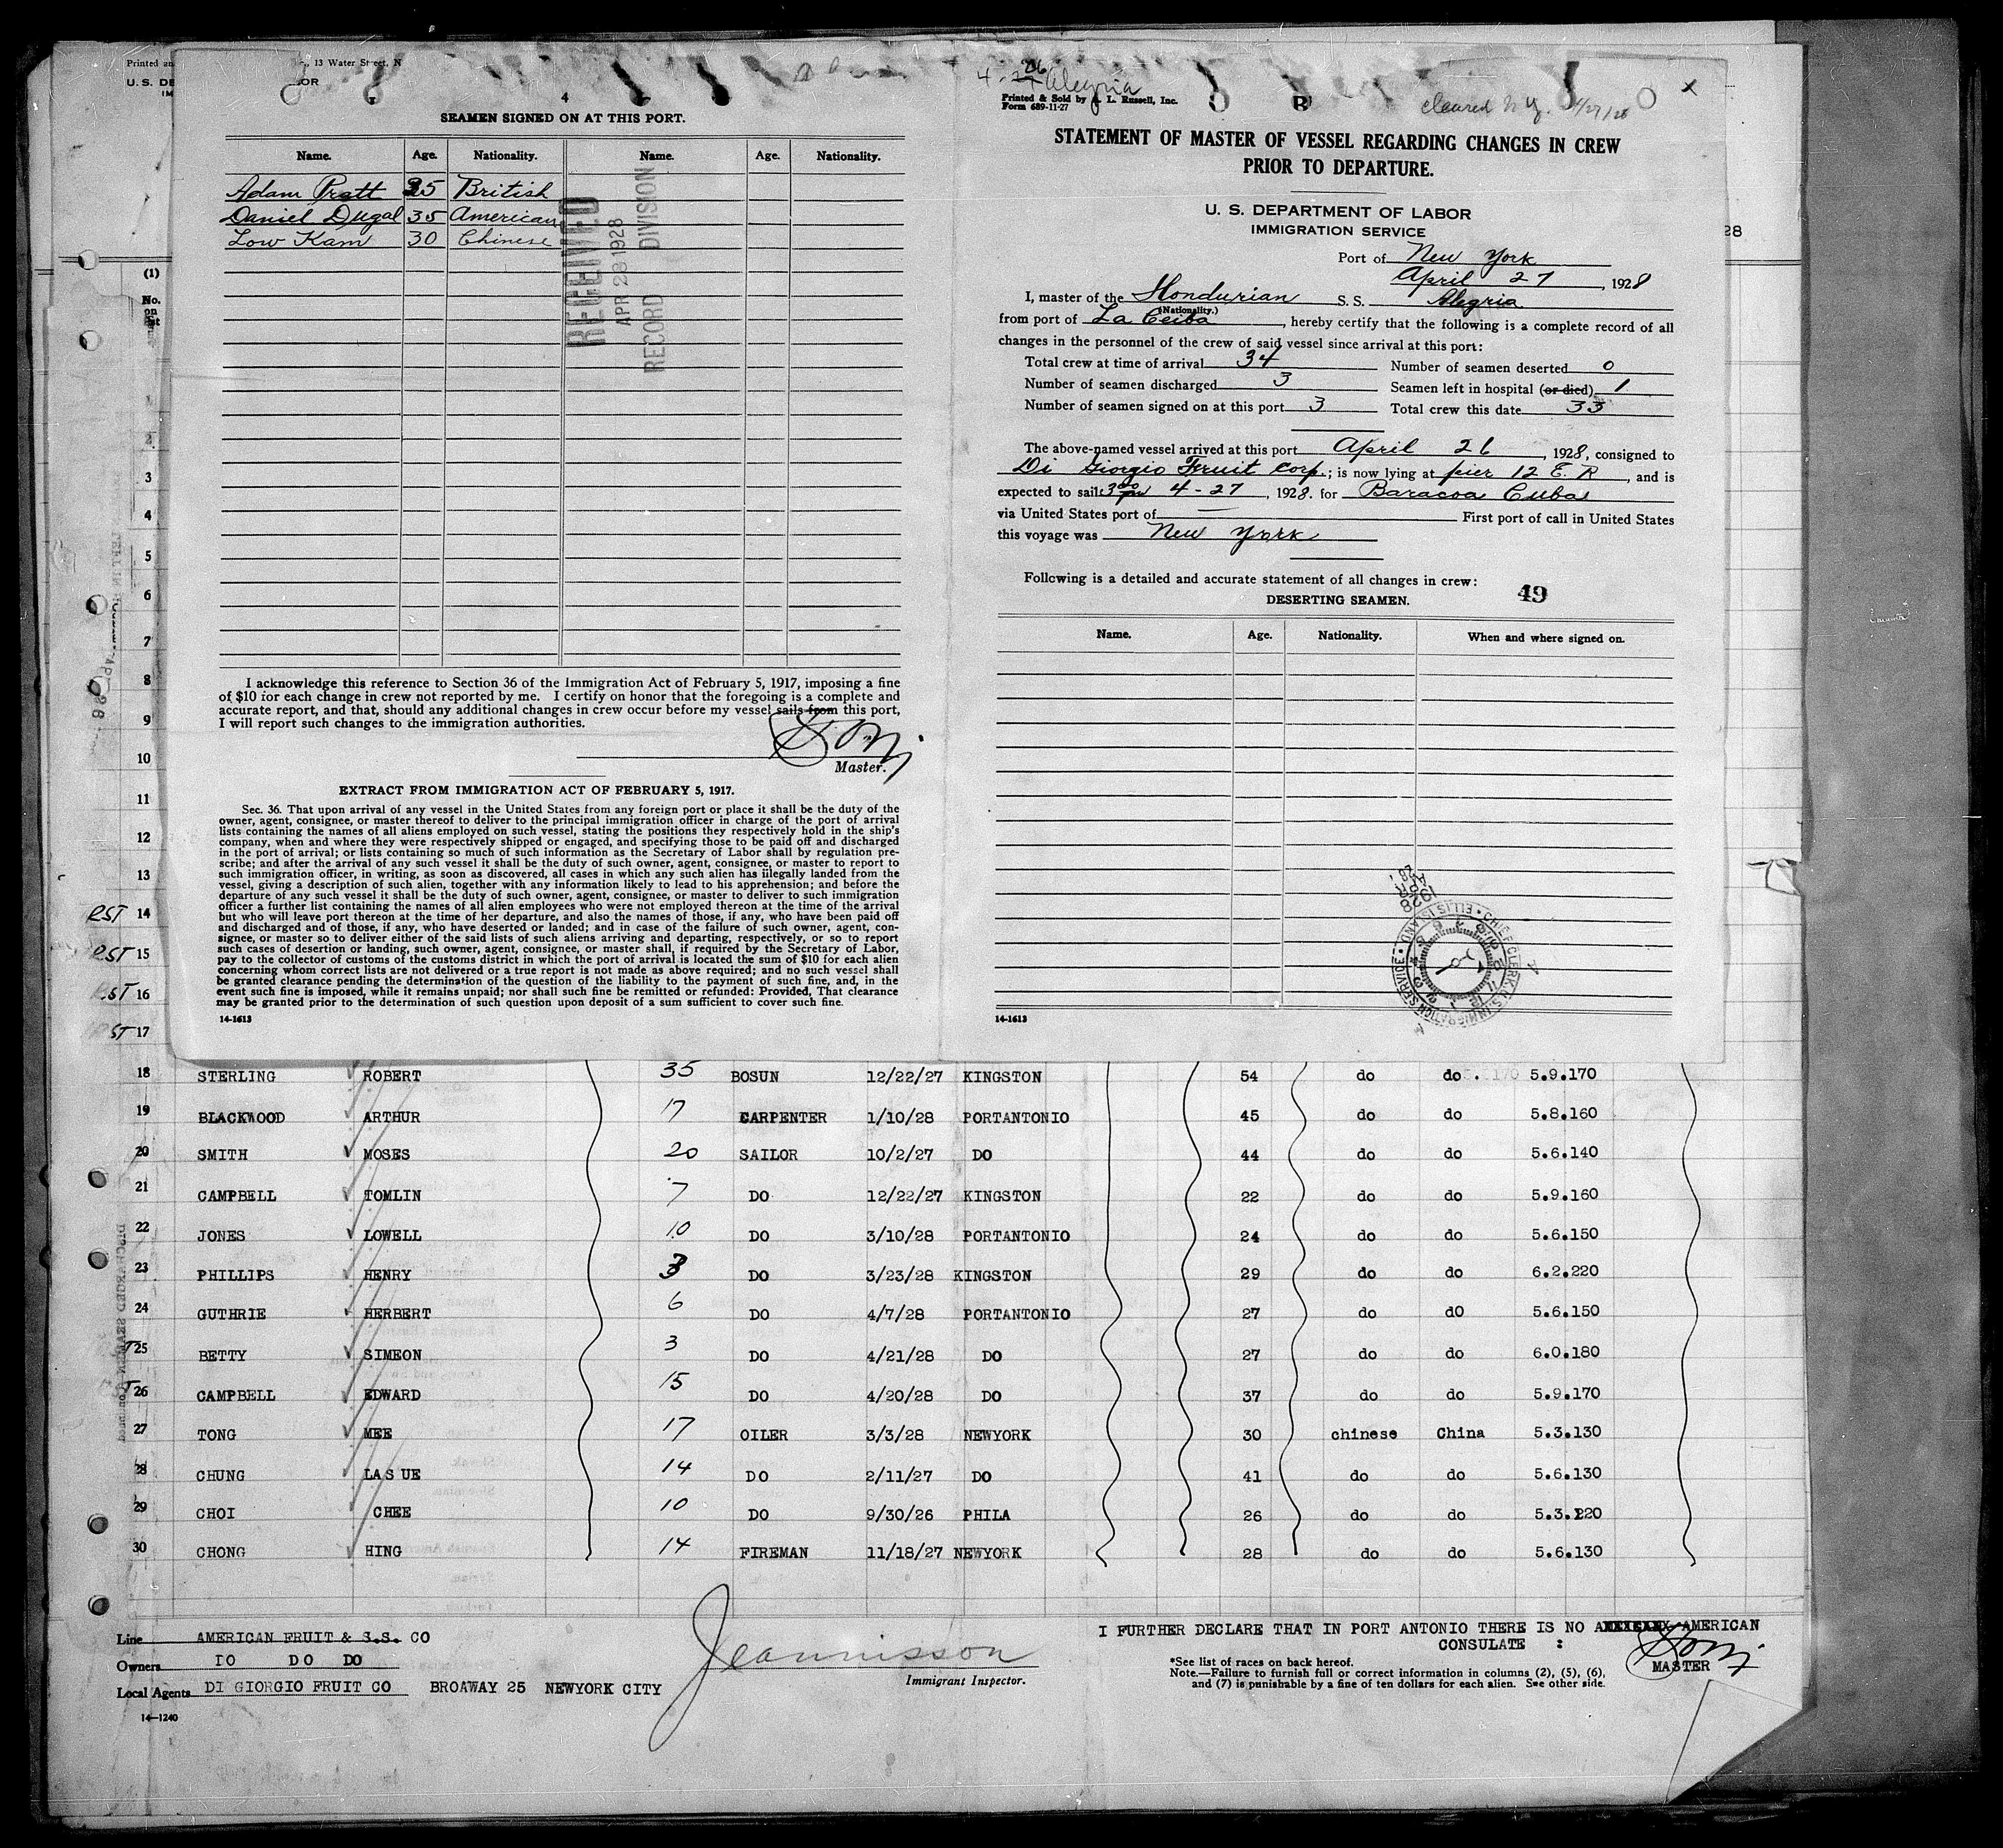 Printed an
., 13 Water Street, N
U. S. DE
OR
4
SEAMEN SIGNED ON AT THIS PORT.
Name. Age. Nationality. Name. Age. Nationality.
Adam Pratt 35 British
Daniel Dugal 35 American
Low Kam 30 Chinese
RECEIVED
APR 28 1928
RECORD DIVISION
I acknowledge this reference to Section 36 of the Immigration Act of February 5, 1917, imposing a fine
of $10 for each change in crew not reported by me. I certify on honor that the foregoing is a complete and
accurate report, and that, should any additional changes in crew occur before my vessel sails from this port,
I will report such changes to the immigration authorities.
Master.
EXTRACT FROM IMMIGRATION ACT OF FEBRUARY 5, 1917.
Sec. 36. That upon arrival of any vessel in the United States from any foreign port or place it shall be the duty of the
owner, agent, consignee, or master thereof to deliver to the principal immigration officer in charge of the port of arrival
lists containing the names of all aliens employed on such vessel, stating the positions they respectively hold in the ship's
company, when and where they were respectively shipped or engaged, and specifying those to be paid off and discharged
in the port of arrival; or lists containing so much of such information as the Secretary of Labor shall by regulation pre-
scribe; and after the arrival of any such vessel it shall be the duty of such owner, agent, consignee, or master to report to
such immigration officer, in writing, as soon as discovered, all cases in which any such alien has illegally landed from the
vessel, giving a description of such alien, together with any information likely to lead to his apprehension; and before the
departure of any such vessel it shall be the duty of such owner, agent, consignee, or master to deliver to such immigration
officer a further list containing the names of all alien employees who were not employed thereon at the time of the arrival
but who will leave port thereon at the time of her departure, and also the names of those, if any, who have been paid off
and discharged and of those, if any, who have deserted or landed; and in case of the failure of such owner, agent, con-
signee, or master so to deliver either of the said lists of such aliens arriving and departing, respectively, or so to report
such cases of desertion or landing, such owner, agent, consignee, or master shall, if required by the Secretary of Labor,
pay to the collector of customs of the customs district in which the port of arrival is located the sum of $10 for each alien
concerning whom correct lists are not delivered or a true report is not made as above required; and no such vessel shall
be granted clearance pending the determination of the question of the liability to the payment of such fine, and, in the
event such fine is imposed, while it remains unpaid; nor shall such fine be remitted or refunded: Provided, That clearance
may be granted prior to the determination of such question upon deposit of a sum sufficient to cover such fine.
14-1613
Alegria
Printed & Sold by L. Russell, Inc.
Form 689-11-27
cleared N.Y. 4/27/28
x
STATEMENT OF MASTER OF VESSEL REGARDING CHANGES IN CREW
PRIOR TO DEPARTURE.
U. S. DEPARTMENT OF LABOR
IMMIGRATION SERVICE
Port of New York
April 27, 1928
I, master of the Hondurian S. S. Alegria
(Nationality.)
from port of La Ceiba, hereby certify that the following is a complete record of all
changes in the personnel of the crew of said vessel since arrival at this port:
Total crew at time of arrival 34 Number of seamen deserted 0
Number of seamen discharged 3 Seamen left in hospital (or died) 1
Number of seamen signed on at this port 3 Total crew this date 33
The above-named vessel arrived at this port April 26, 1928, consigned to
Di Giorgio Fruit Corp.; is now lying at pier 12 E. R, and is
expected to sail 3 00 pm 4-27, 1928. for Baracoa Cuba
via United States port of — First port of call in United States
this voyage was New York
Following is a detailed and accurate statement of all changes in crew:
DESERTING SEAMEN. 49
Name. Age. Nationality. When and where signed on.
CHIEF CLERK, U.S. IMMIGRATION SERVICE • ELLIS ISLAND
14-1613
28
(1)
No.
on
3
4
5
6
7
8
9
10
11
12
13
RST 14
RST 15
RST 16
ST 17
18 STERLING ROBERT 35 BOSUN 12/22/27 KINGSTON 54 do do. 5.9.170
19 BLACKWOOD ARTHUR 17 CARPENTER 1/10/28 PORTANTONIO 45 do do 5.8.160
20 SMITH MOSES 20 SAILOR 10/2/27 DO 44 do do 5.6.140
21 CAMPBELL TOMLIN 7 DO 12/22/27 KINGSTON 22 do do 5.9.160
22 JONES LOWELL 10 DO 3/10/28 PORTANTONIO 24 do do 5.6.150
23 PHILLIPS HENRY 3 DO 3/23/28 KINGSTON 29 do do 6.2.220
24 GUTHRIE HERBERT 6 DO 4/7/28 PORTANTONIO 27 do dO 5.6.150
25 BETTY SIMEON 3 DO 4/21/28 DO 27 do do 6.0.180
26 CAMPBELL EDWARD 15 DO 4/20/28 DO 37 do do 5.9.170
27 TONG MEE 17 OILER 3/3/28 NEWYORK 30 chinese China 5.3.130
28 CHUNG LAS UE 14 DO 2/11/27 DO 41 do do 5.6.130
29 CHOI CHEE 10 DO 9/30/26 PHILA 26 do do 5.3.120
30 CHONG HING 14 FIREMAN 11/18/27 NEWYORK 28 do do 5.6.130
Line AMERICAN FRUIT & S.S. CO
Owners DO DO DO
Local Agents DI GIORGIO FRUIT CO BROAWAY 25 NEWYORK CITY
14—1240
Jeannisson
Immigrant Inspector.
I FURTHER DECLARE THAT IN PORT ANTONIO THERE IS NO AMERICAN
CONSULATE :
MASTER
*See list of races on back hereof.
Note.—Failure to furnish full or correct information in columns (2), (5), (6),
and (7) is punishable by a fine of ten dollars for each alien. See other side.